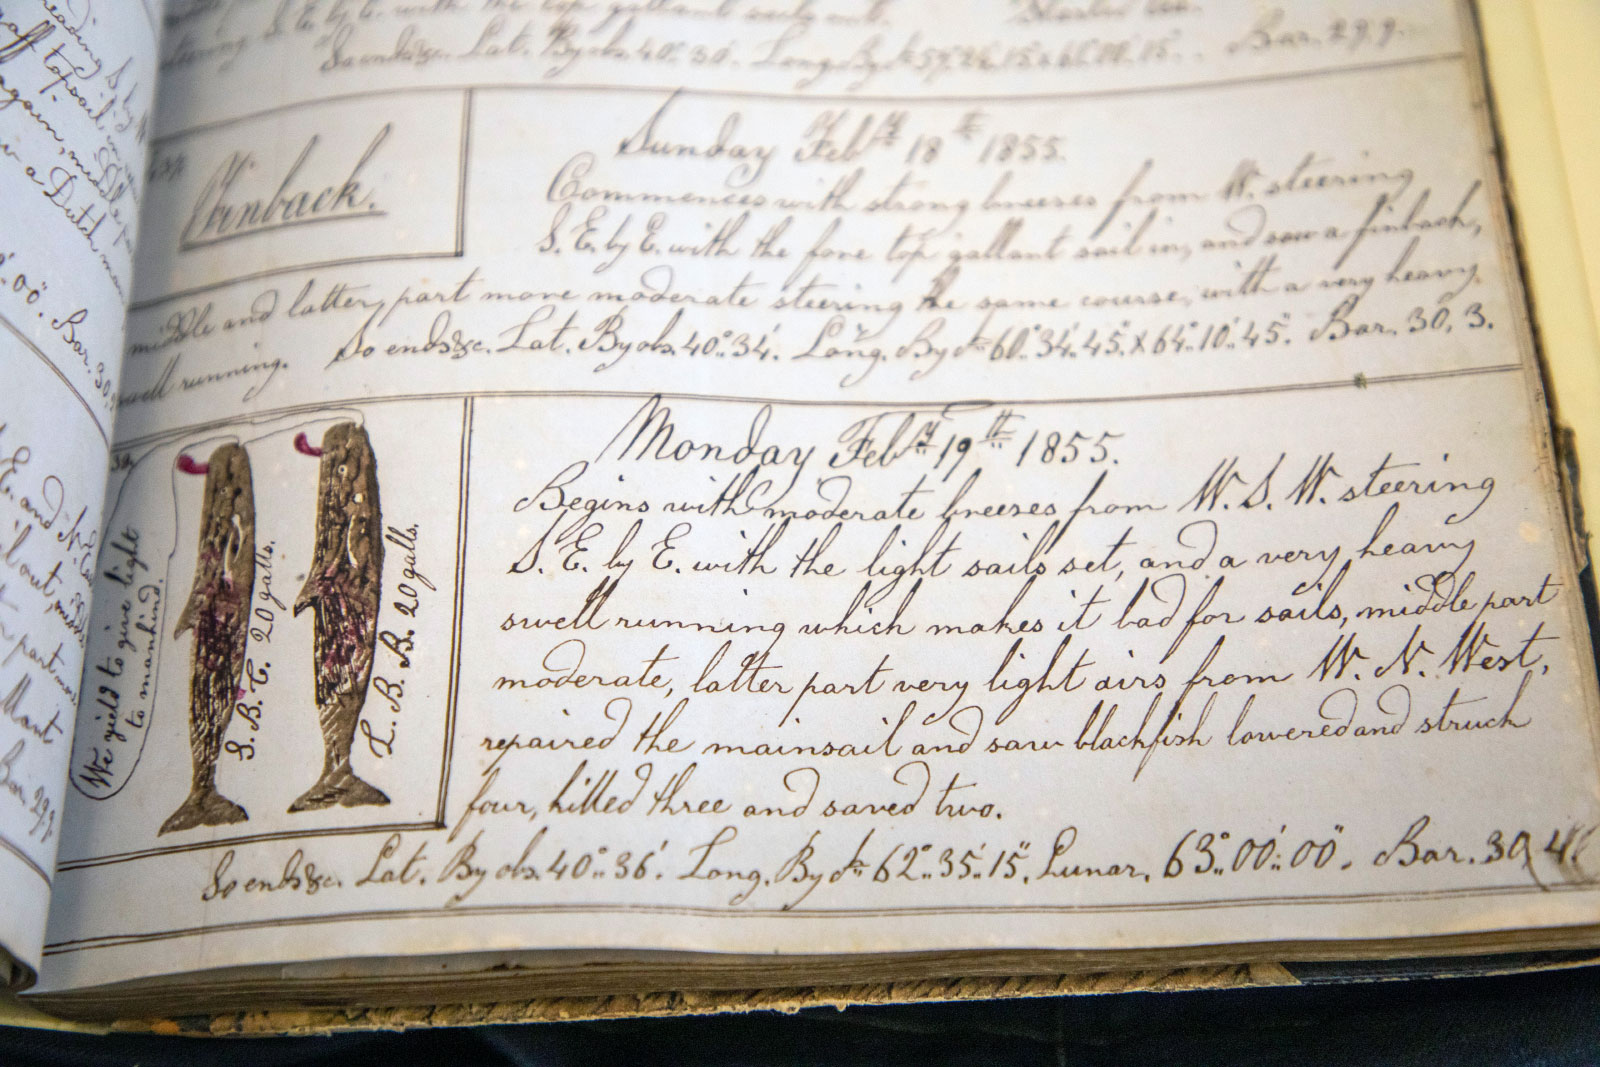 S. E. by E. with the top gallant sails out.
So ends &c. Lat. By obs. 40°. 30'. Long. By Bar. 29.9.
Finback.
Sunday Feby 18th 1855.
Commences with strong breeses from W. steering
S. E. by E. with the fore top gallant sail in, and saw a finback,
middle and latter part more moderate steering the same course, with a very heavy
swell running. So ends &c. Lat. By obs. 40°. 34'. Long. By Chr 60°. 34'. 45" X 64°. 10'. 45". Bar. 30, 3.
We yield to give light
to mankind.
S. B. T. 20 galls.
L. B. B. 20 galls.
Monday Feby 19th 1855.
Begins with moderate breeses from W. S. W. steering
S. E. by E. with the light sails set, and a very heavy
swell running which makes it bad for sails, middle part
moderate, latter part very light airs from W. N. West,
repaired the mainsail and saw blackfish lowered and struck
four, killed three and saved two.
So ends &c. Lat. By obs. 40°. 36'. Long. By Chr 62°. 35'. 15". Lunar. 63°. 00'. 00". Bar. 30, 4.
reading S. by W
gaff topsail in
again, middle
a Dutch man
00". Bar. 30.
E. and N. E
part more
Bar. 29.9.